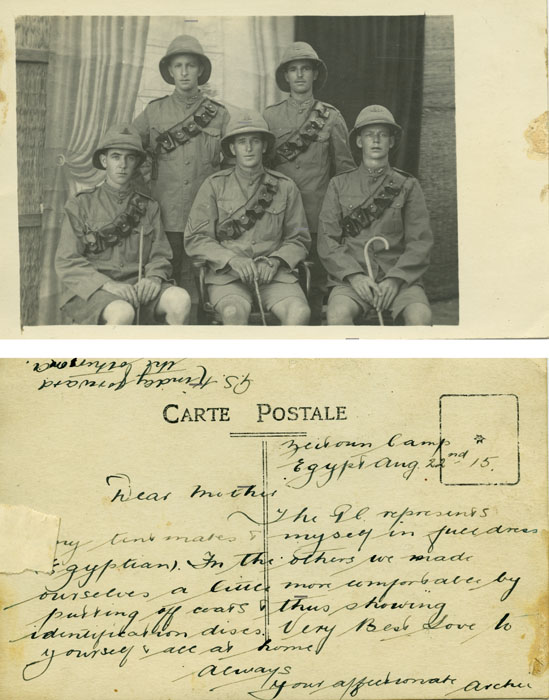 P.S. Kindly forward
the other one.
CARTE POSTALE
Zeitoun Camp
Egypt Aug. 22nd 15.
Dear Mother
The P.C. represents
my tent mates & myself in full dress
Egyptian). In the others we made
ourselves a little more comfortable by
putting off coats & thus showing
identification discs. Very Best Love to
yourself & all at home
Always
your affectionate Archie